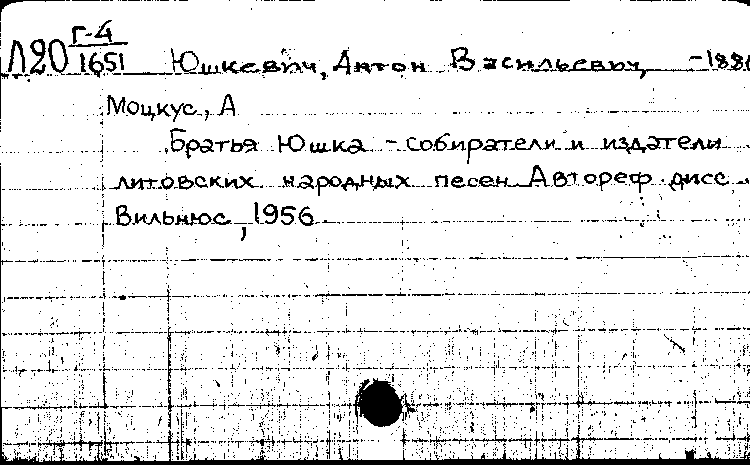 Л20 Г-4
1651
Юшкевич, Антон Васильевич, -188
Моцкус, А
Братья Юшка - собиратели и издатели
литовских народных песен Автореф. дисс.
Вильнюс, 1956.